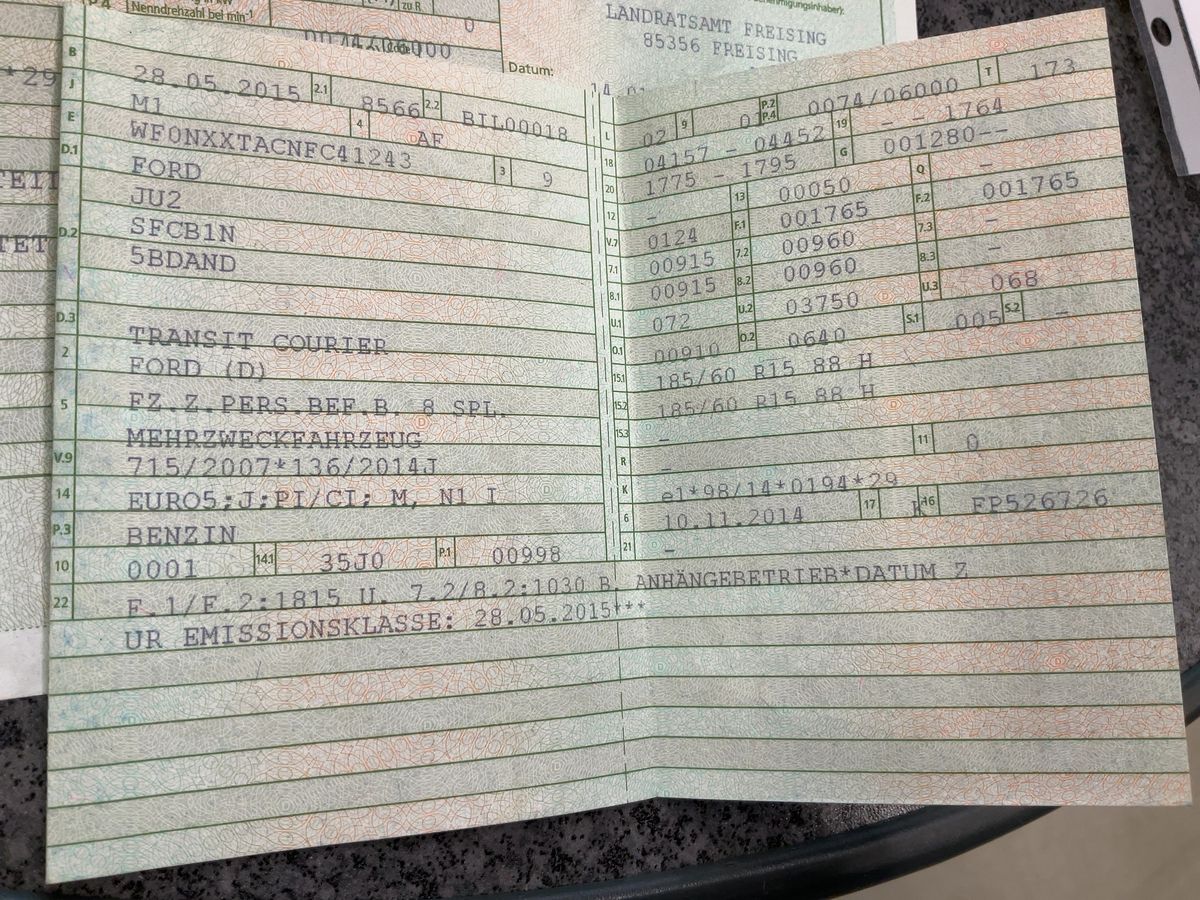 P.4 Nenndrehzahl bei min-1
zu R
0
LANDRATSAMT FREISING
85356 FREISING
Datum:
*29
B 28.05.2015 2.1 8566 2.2 BIL00018
J M1 4 AF
E WF0NXXTACNFC41243 3 9
D.1 FORD
JU2
D.2 SFCB1N
5BDAND
D.3 TRANSIT COURIER
2 FORD (D)
5 FZ.Z.PERS.BEF.B. 8 SPL.
MEHRZWECKFAHRZEUG
V.9 715/2007*136/2014J
14 EURO5;J;PI/CI; M, N1 I
P.3 BENZIN
10 0001 14.1 35J0 P.1 00998
L 02 9 01 P.2 P.4 0074/06000 T 173
18 04157 - 04452 19 - - 1764
20 1775 - 1795 G 001280--
12 - 13 00050 Q -
V.7 0124 F.1 001765 F.2 001765
7.1 00915 7.2 00960 7.3 -
8.1 00915 8.2 00960 8.3 -
U.1 072 U.2 03750 U.3 068
O.1 00910 O.2 0640 S.1 005 S.2 -
15.1 185/60 R15 88 H
15.2 185/60 R15 88 H
15.3 -
R - 11 0
K e1*98/14*0194*29
6 10.11.2014 17 K 16 FP526726
21 -
22 F.1/F.2:1815 U. 7.2/8.2:1030 B. ANHÄNGEBETRIEB*DATUM Z
UR EMISSIONSKLASSE: 28.05.2015***